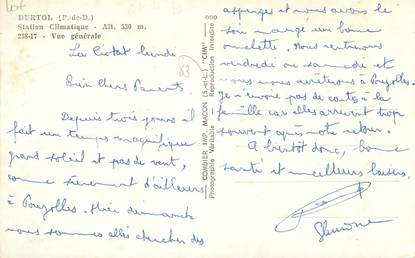 DURTOL (P.-de-D.)
Station Climatique - Alt. 530 m.
258-17 - Vue générale
La Ciotat lundi
Bien chers Parents.
Depuis trois jours il
fait un temps magnifique
grand soleil et pas de vent,
comme sûrement d'ailleurs
à Pouzolles. Hier dimanche
nous sommes allés chercher des
COMBIER IMP. MACON (S.-et-L.) "CIM"
Photographie Véritable Reproduction Interdite
83
asperges et nous avons le
soir mangé une bonne
omelette. Nous rentrerons
vendredi ou samedi et
nous nous arrêterons à Pouzolles.
Je n'envoie pas de cartes à la
famille car elles arrivent trop
souvent après notre retour.
A bientôt donc, bonne
santé et meilleurs baisers.